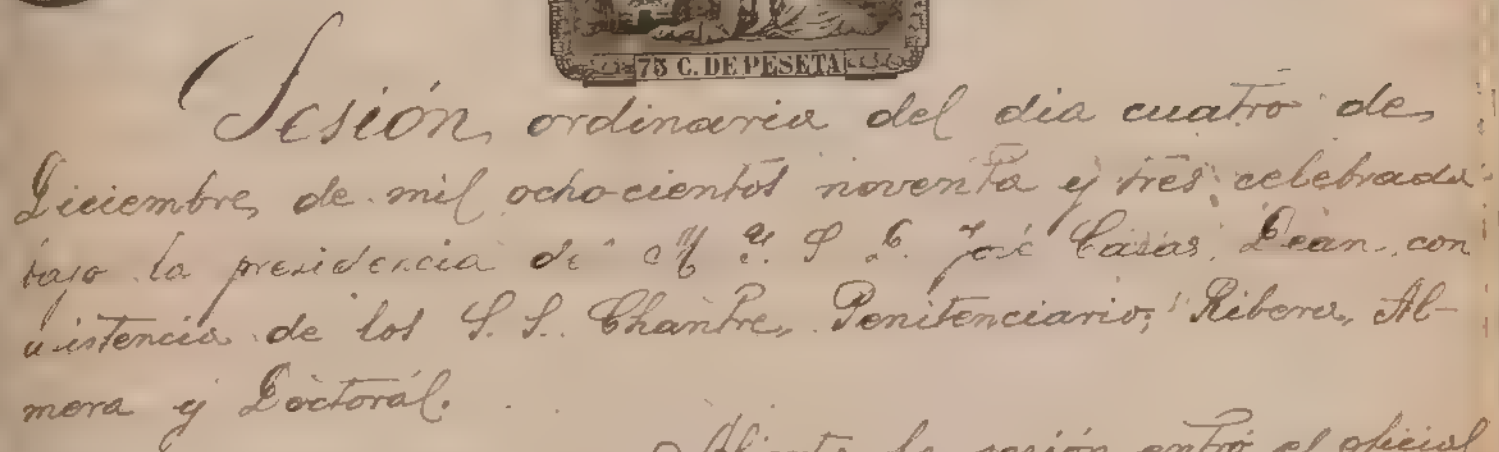 75 C. DE PESETA
Sesión ordinaria del dia cuatro de
Diciembre de mil ochocientos noventa y tres celebrada
bajo la presidencia de M Y. S D. José Casas, Deán, con
asistencia de los S. S. Chantre, Penitenciario, Ribera, Al-
mera y Doctoral.
Abierta la sesión entró el oficial